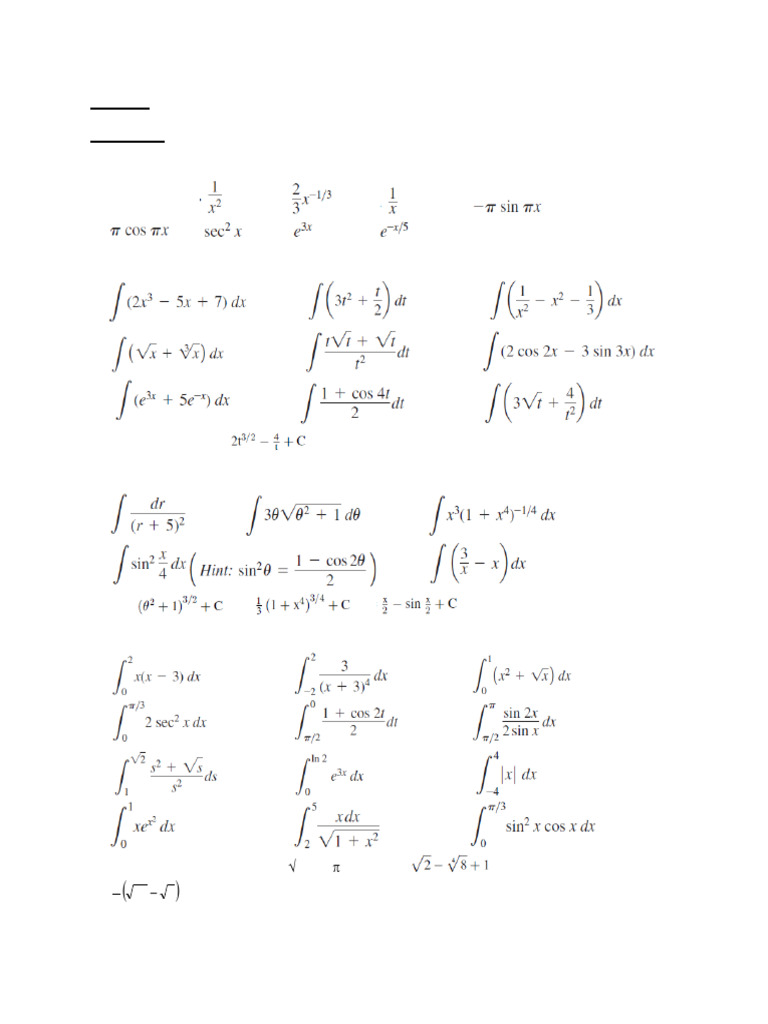 . 1/x² 2/3 x^(−1/3) 1/x −π sin πx
π cos πx sec² x e^(3x) e^(−x/5)
∫(2x³ − 5x + 7) dx ∫(3t² + t/2) dt ∫(1/x² − x² − 1/3) dx
∫(√x + ∛x) dx ∫ (t√t + √t)/t² dt ∫(2 cos 2x − 3 sin 3x) dx
∫(e^(3x) + 5e^(−x)) dx ∫ (1 + cos 4t)/2 dt ∫(3√t + 4/t²) dt
2t^(3/2) − 4/t + C
∫ dr/(r + 5)² ∫ 3θ√(θ² + 1) dθ ∫ x³(1 + x⁴)^(−1/4) dx
∫ sin² x/4 dx (Hint: sin²θ = (1 − cos 2θ)/2) ∫(3/x − x) dx
(θ² + 1)^(3/2) + C 1/3 (1 + x⁴)^(3/4) + C x/2 − sin x/2 + C
∫₀² x(x − 3) dx ∫₋₂² 3/(x + 3)⁴ dx ∫₀¹ (x² + √x) dx
∫₀^(π/3) 2 sec² x dx ∫_(π/2)^0 (1 + cos 2t)/2 dt ∫_(π/2)^π sin 2x/(2 sin x) dx
∫₁^(√2) (s² + √s)/s² ds ∫₀^(ln 2) e^(3x) dx ∫₋₄⁴ |x| dx
∫₀¹ xe^(x²) dx ∫₂⁵ x dx/√(1 + x²) ∫₀^(π/3) sin² x cos x dx
√ π √2 − ∜8 + 1
−(√ − √)